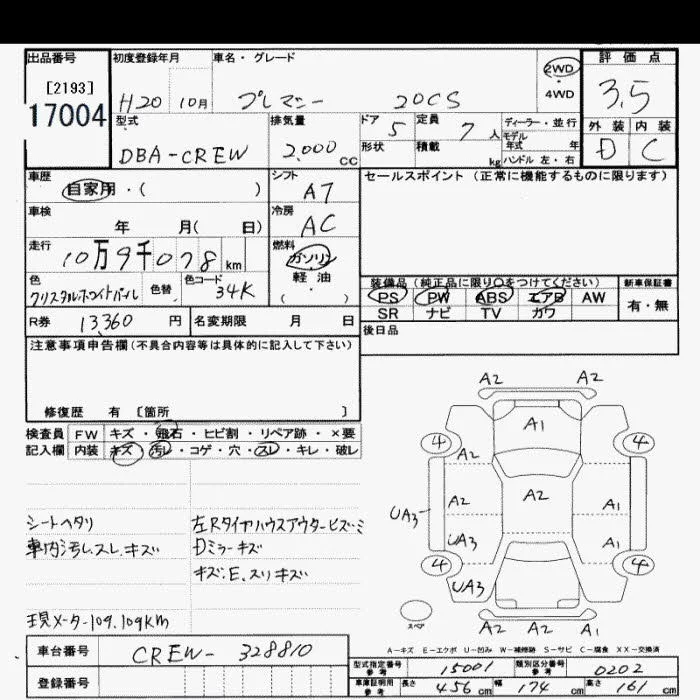 出品番号 初度登録年月 車名・グレード 2WD 評価点
[2193] ・
17004 H20 10月 プレマシー 20CS 4WD 3.5
型式 排気量 ドア 5 定員 7人 ディーラー・並行 外装 内装
モデル
DBA-CREW 2.000cc 形状 積載 kg 年式 年 D C
ハンドル 左・右
車歴 シフト セールスポイント(正常に機能するものに限ります)
自家用・( ) A7
車検 冷房
年 月( 日) AC
走行 燃料
10万9千078km ガソリン
軽・油
色 色替 色コード ・( )
クリスタルホワイトパール 34K
装備品(純正品に限り○をつけてください) 新車保証書
PS PW ABS エアB AW 有・無
SR ナビ TV カワ
R券 13360円 名変期限 月 日
後日品
注意事項申告欄(不具合内容等は具体的に記入して下さい)
修復歴 有 [箇所 ]
検査員 FW キズ・飛石・ヒビ割・リペア跡・×要
記入欄 内装 キズ・汚レ・コゲ・穴・スレ・キレ・破レ
シートヘタリ
車内汚レ.スレ.キズ
左Rタイヤハウスアウタービズ・ミ
Dミラーキズ
キズ.E.スリキズ
現メーター109.109KM
A2 A2
A1
4 4
A2
A2 A2 A1
UA3
UA3 A1
4 4
UA3
スペア
A2 A2 A1
A-キズ E-エクボ U-凹み W-補修跡 S-サビ C-腐食 XX-交換済
車台番号 CREW-328810
登録番号
型式指定番号 参考 15001 類別区分番号 参考 0202
車庫証明用 参考 長さ 456cm 幅 174cm 高さ 161cm